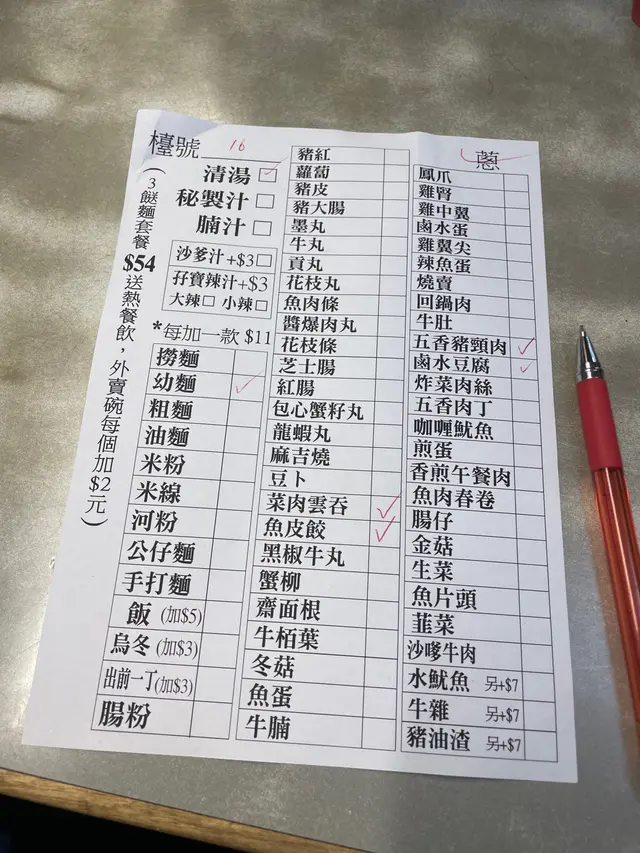 檯號 16
清湯 □ ✓
秘製汁 □
腩汁 □
沙爹汁+$3□
孖寶辣汁+$3
大辣□ 小辣□
*每加一款 $11
(3餸麵套餐$54送熱餐飲，外賣碗每個加$2元)
撈麵
幼麵 ✓
粗麵
油麵
米粉
米線
河粉
公仔麵
手打麵
飯 (加$5)
烏冬 (加$3)
出前一丁(加$3)
腸粉
豬紅
蘿蔔
豬皮
豬大腸
墨丸
牛丸
貢丸
花枝丸
魚肉條
醬爆肉丸
花枝條
芝士腸
紅腸
包心蟹籽丸
龍蝦丸
麻吉燒
豆卜
菜肉雲吞 ✓
魚皮餃 ✓
黑椒牛丸
蟹柳
齋面根
牛栢葉
冬菇
魚蛋
牛腩
蔥
鳳爪
雞腎
雞中翼
鹵水蛋
雞翼尖
辣魚蛋
燒賣
回鍋肉
牛肚
五香豬頸肉 ✓
鹵水豆腐 ✓
炸菜肉絲
五香肉丁
咖喱魷魚
煎蛋
香煎午餐肉
魚肉春卷
腸仔
金菇
生菜
魚片頭
韮菜
沙嗲牛肉
水魷魚 另+$7
牛雜 另+$7
豬油渣 另+$7